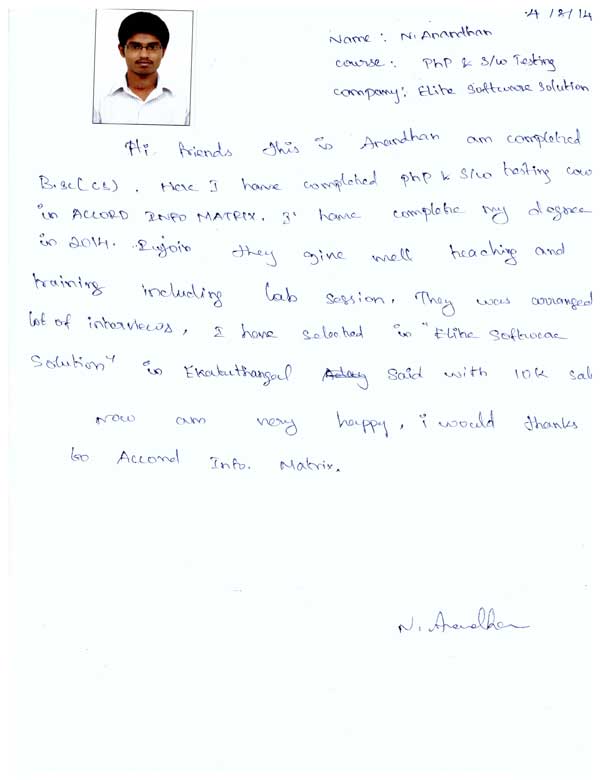 4/8/14
Name : N. Anandhan
course : PhP & S/w Testing
company : Elite Software Solution
Hi friends this is Anandhan am completed
B.sc(cs). Here I have completed php & S/w testing cou
in ACCORD INFO MATRIX. I have complete my degree
in 2014. they give well teaching and
training including lab session. They was arranged
lot of interviews, I have selected in "Elite Software
Solution" in Ekatuthangal said with 10K sal
Now am very happy, i would thanks
to Accord Info. Matrix.
N. Anandhan